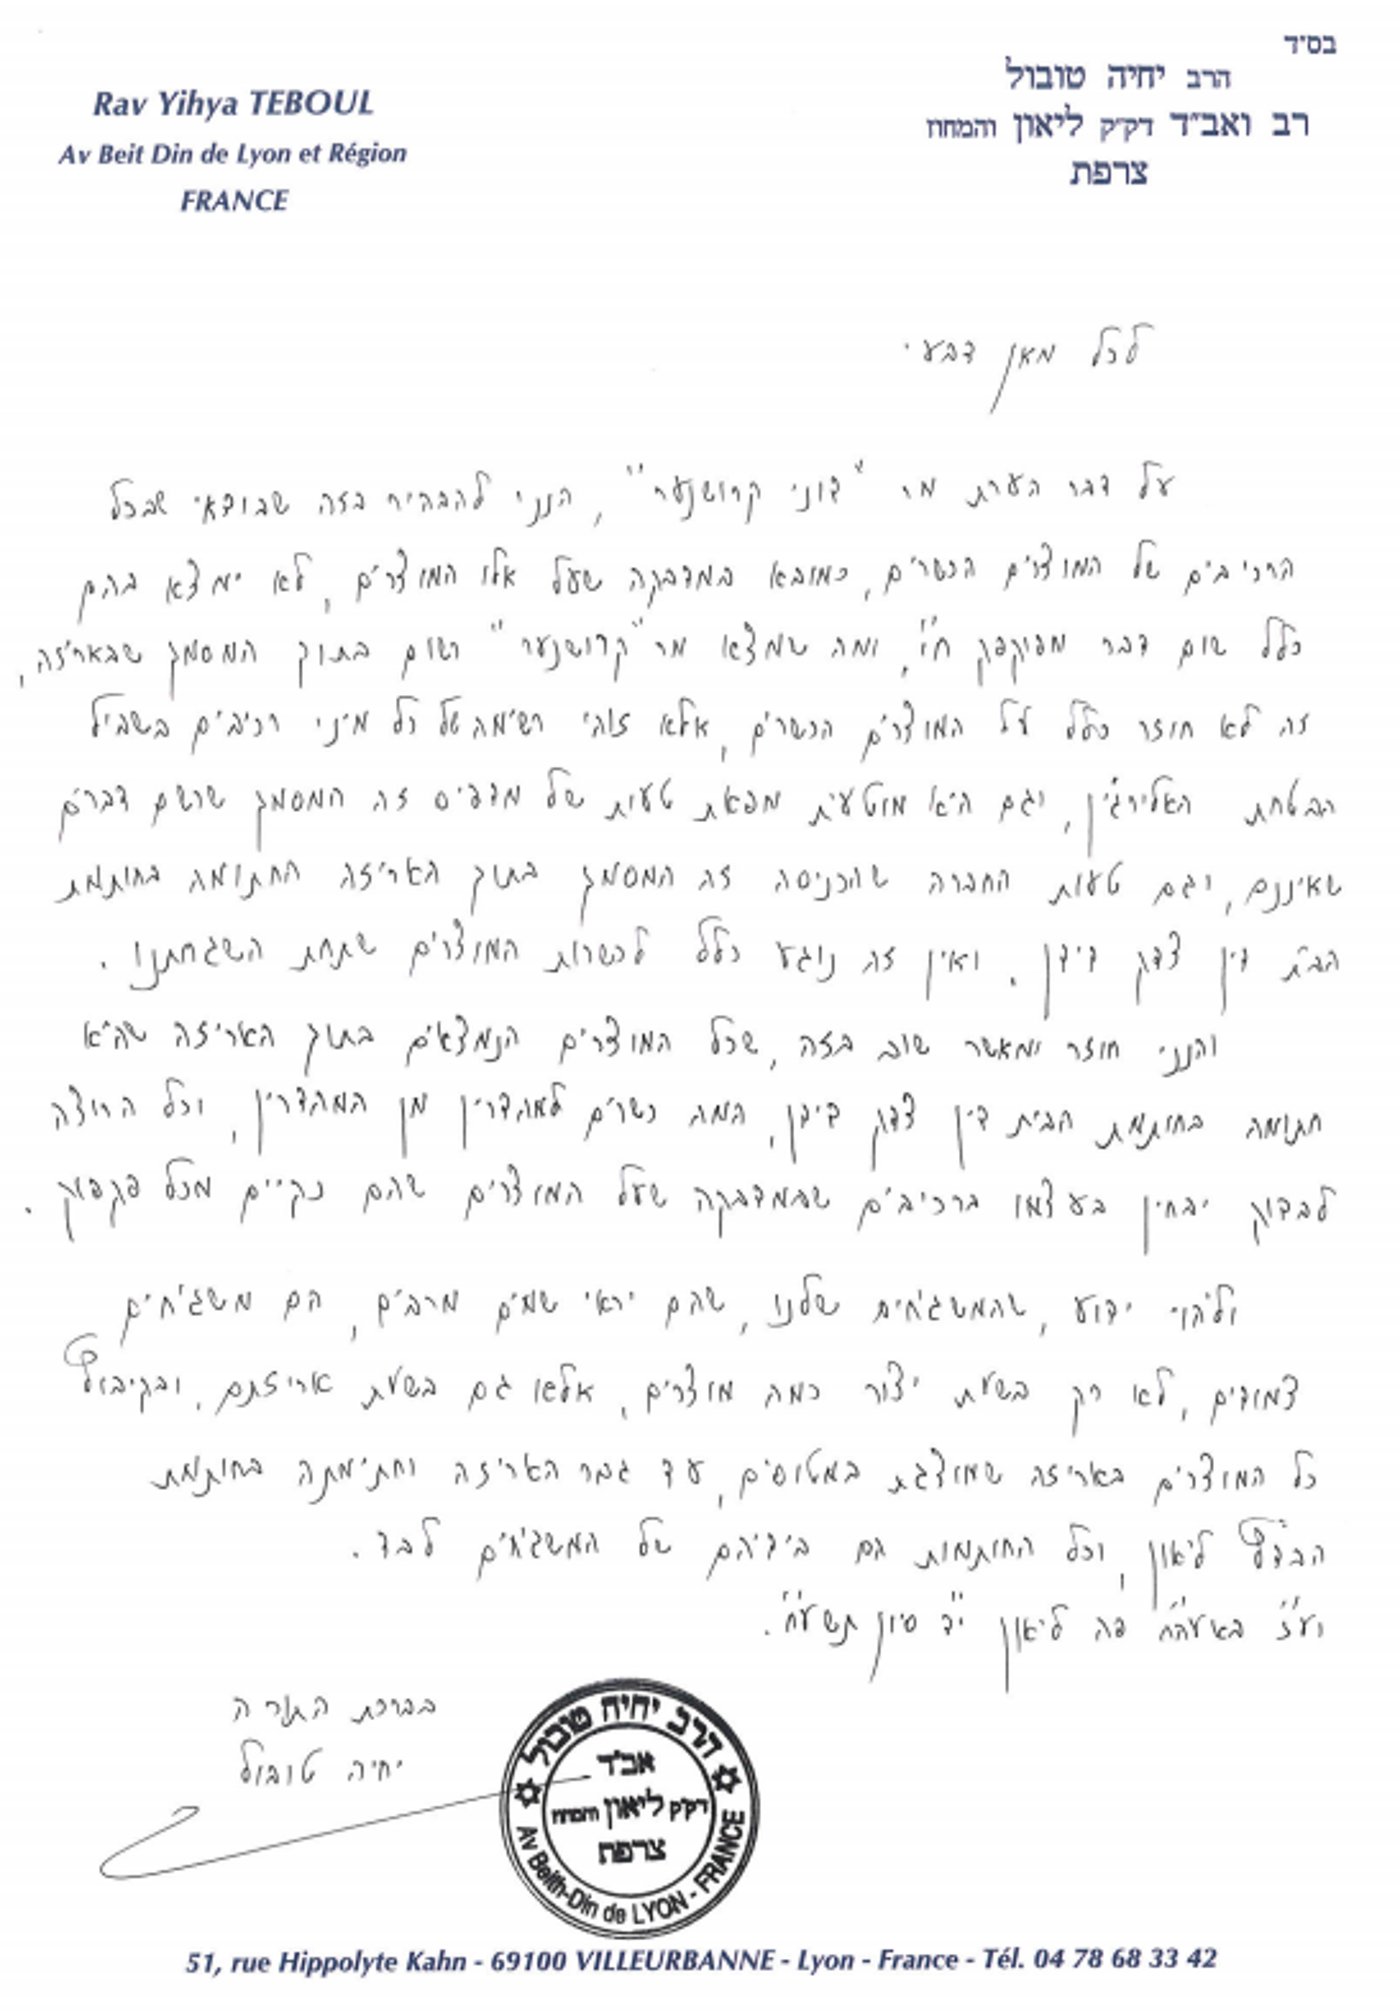 בס"ד
הרב יחיה טובול
רב ואב"ד דק"ק ליאון והמחוז
צרפת
Rav Yihya TEBOUL
Av Beit Din de Lyon et Région
FRANCE
לכל מאן דבעי
על דבר הערת מר "דוני קרושנער", הנני להבהיר בזה שבודאי שבכל
הרכיבים של המוצרים הכשרים, כמובא במדבקה שעל אלו המוצרים, לא ימצא בהם
כלל שום דבר מפוקפק ח"ו, ומה שמצא מר "קרושנער" רשום בתוך המסמך שבאריזה,
זה לא חוזר כלל על המוצרים הכשרים, אלא זוהי רשימה של כל מיני רכיבים בשביל
הבטחת האלירגין, וגם היא מוטעית מפאת טעות של מדפיס זה המסמך שרשם דברים
שאיננם, וגם טעות החברה שהכניסה זה המסמך בתוך האריזה החתומה בחותמת
הבית דין צדק דידן. ואין זה נוגע כלל לכשרות המוצרים שתחת השגחתנו.
והנני חוזר ומאשר שוב בזה, שכל המוצרים הנמצאים בתוך האריזה שהיא
חתומה בחותמת הבית דין צדק דידן, המה כשרים למהדרין מן המהדרין, וכל הרוצה
לבדוק יבחין בעצמו ברכיבים שבמדבקה שעל המוצרים שהם נקיים מכל פקפוק.
ולהוי ידוע, שהמשגיחים שלנו, שהם יראי שמים מרבים, הם משגיחים
צמודים, לא רק בשעת יצור כמה מוצרים, אלא גם בשעת אריזתם, ובקיבול
כל המוצרים באריזה שמוצגת במטוסים, עד גמר האריזה וחתימתה בחותמת
הבד"ץ ליאון, וכל החותמות הם בידיהם של המשגיחים לבד.
וע"ז באעה"ח פה ליאון י"ד סיון תשע"ח.
בברכת התורה
יחיה טובול
הרב יחיה טובול
אב"ד
דק"ק ליאון והמחוז
צרפת
Av Beith-Din de LYON - FRANCE
51, rue Hippolyte Kahn - 69100 VILLEURBANNE - Lyon - France - Tél. 04 78 68 33 42